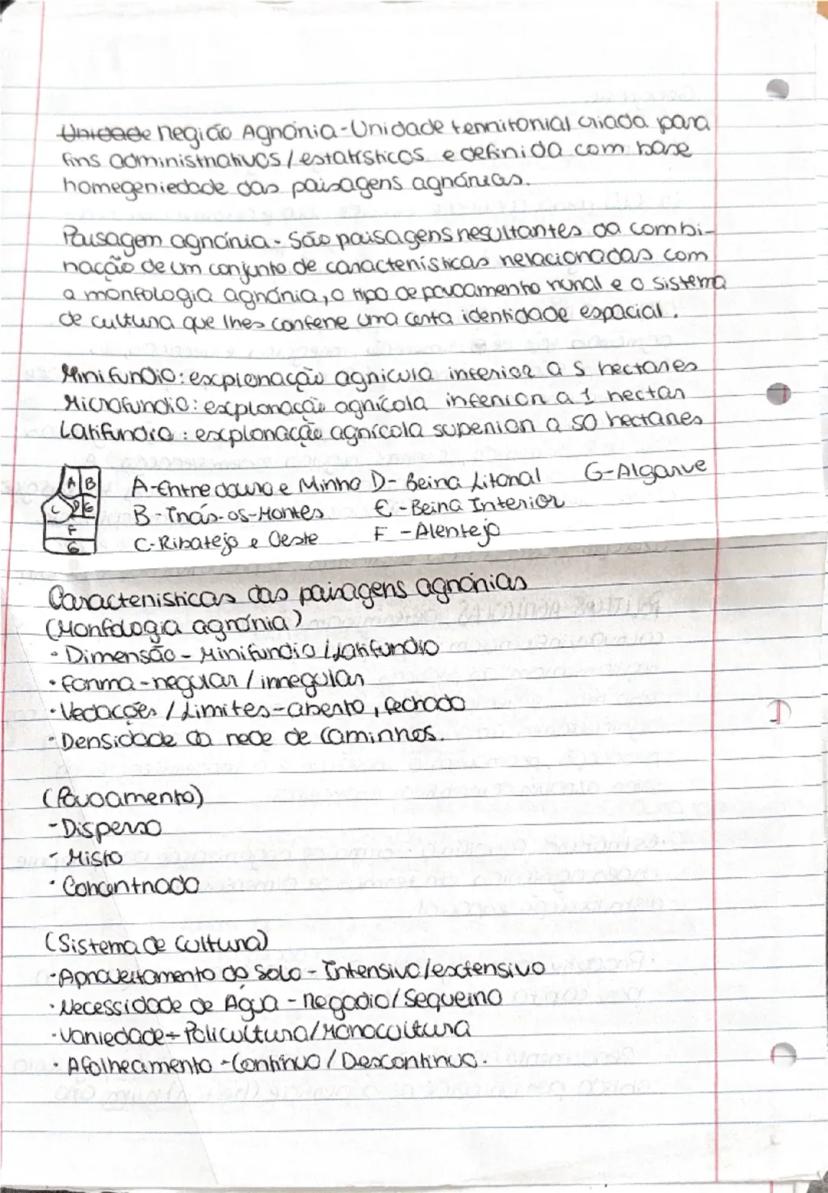 Unidade Região Agrária - Unidade territorial criada para
fins administrativos / estatísticos e definida com base
homegeniedade das paisagens agrárias.
Paisagem agrária - São paisagens resultantes da combi-
nação de um conjunto de características relacionadas com
a morfologia agrária, o tipo de povoamento rural e o sistema
de cultura que lhes confere uma certa identidade espacial.
Minifundio: exploração agricula inferior a 5 hectares
Microfundio: exploração agrícola inferior a 1 hectar
Latifundio: exploração agrícola superior a 50 hectares
A B
C D E
F
G
A-Entre douro e Minho D- Beira Litoral G-Algarve
B-Trás-os-Montes E-Beira Interior
C-Ribatejo e Oeste F-Alentejo
Caracteristicas das paisagens agrárias
(Morfologia agrária)
· Dimensão - Minifundio / Latifundio
· Forma - regular / irregular
· Vedações / Limites - aberto, fechado
· Densidade da rede de caminhos.
(Povoamento)
- Disperso
· Misto
· Concentrado
(Sistema de cultura)
· Aproveitamento do solo - Intensivo/extensivo
· Necessidade de Água - regadio / Sequeiro
· Variedade - Policultura / Monocultura
· Afolheamento - Contínuo / Descontinuo.